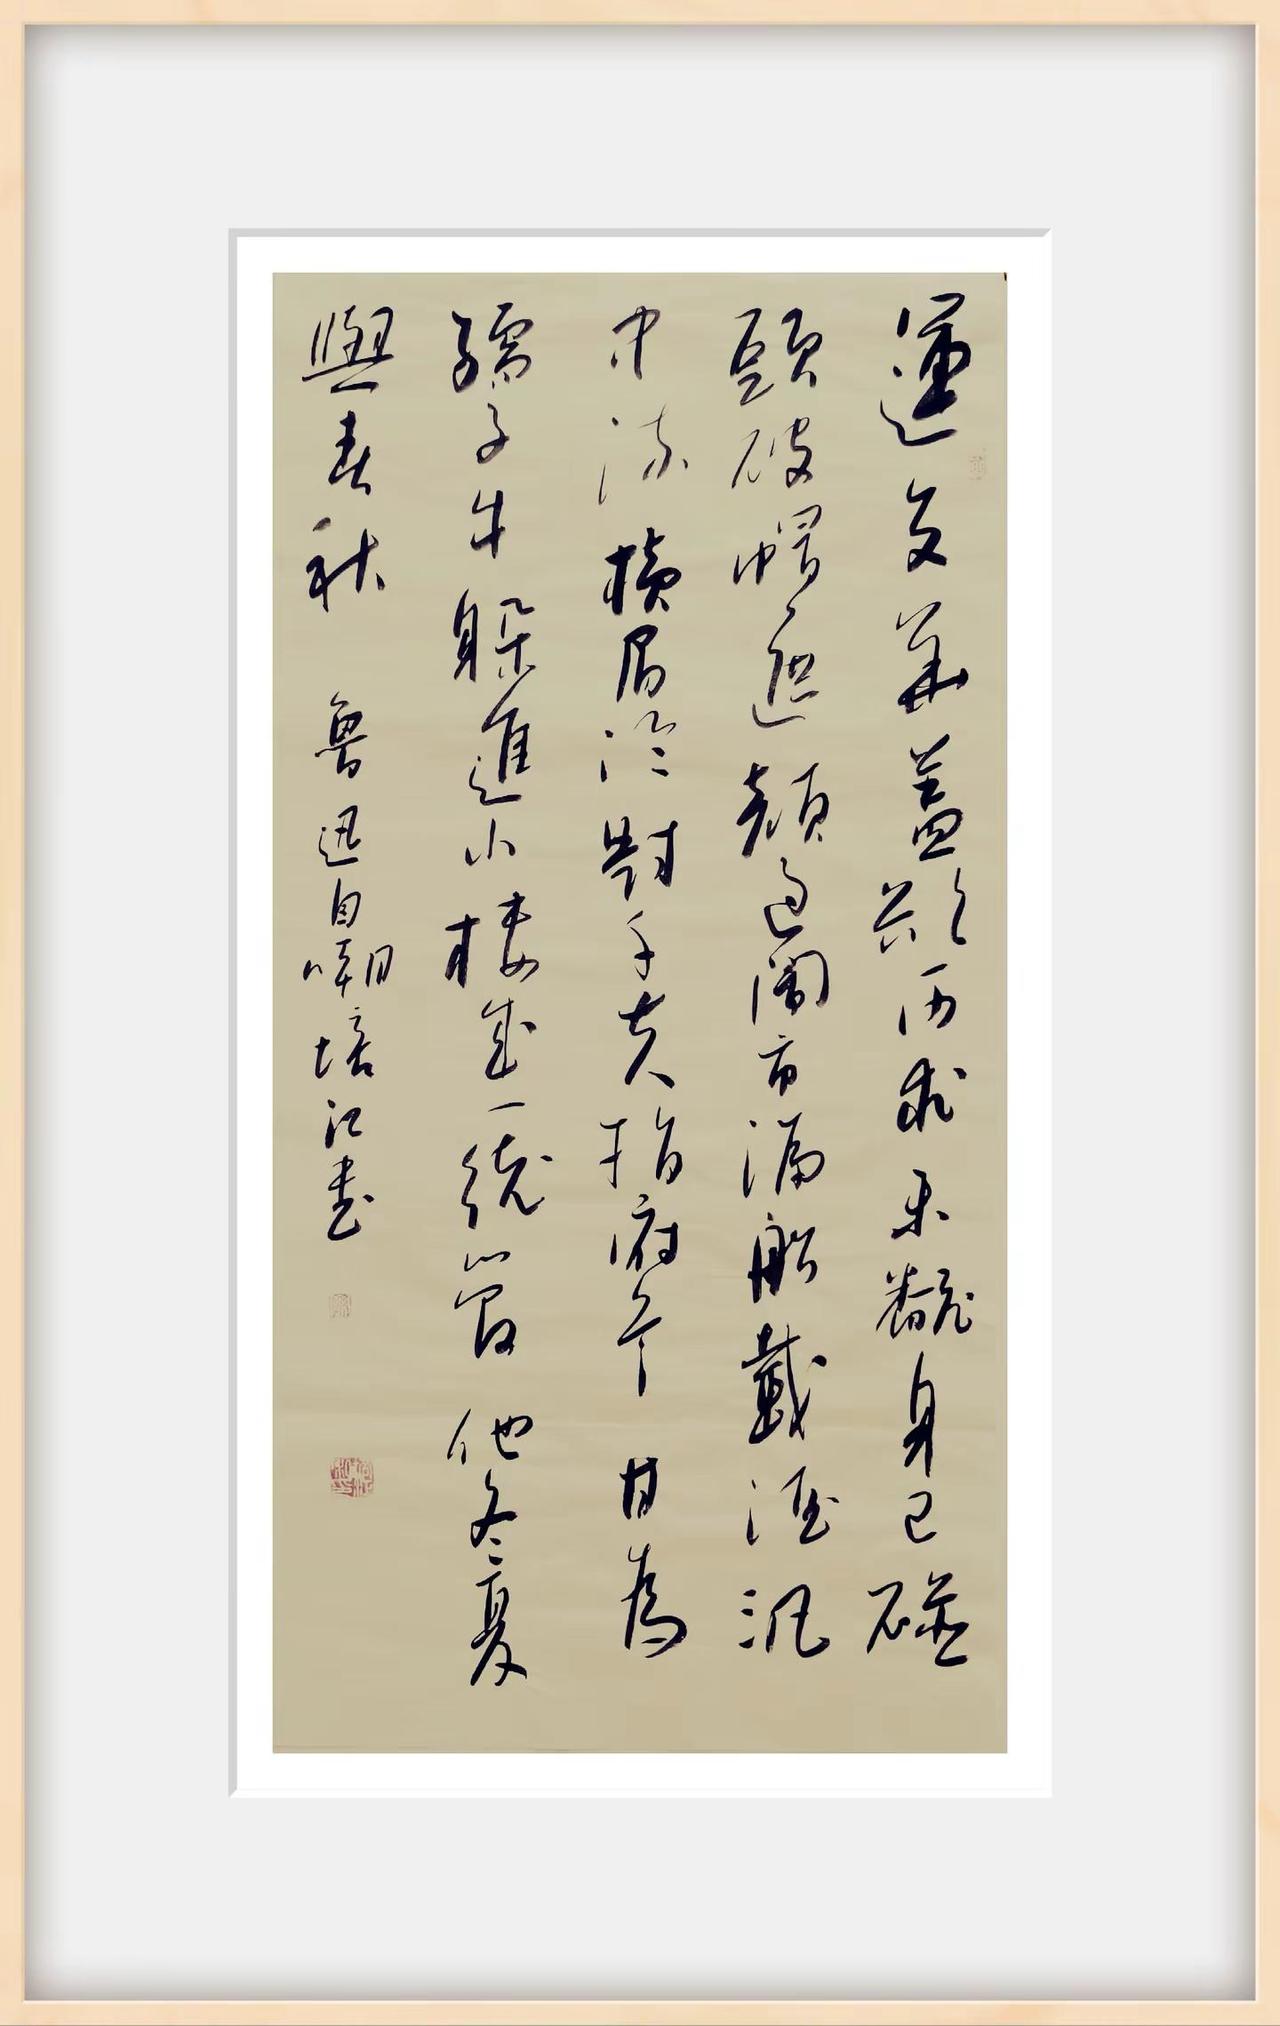 運交華蓋欲何求未翻身已碰
頭破帽遮顏過鬧市漏船戴酒泛
中流橫眉冷對千夫指俯首甘為
孺子牛躲進小樓成一統管他冬夏
與春秋 魯迅自嘲培江書